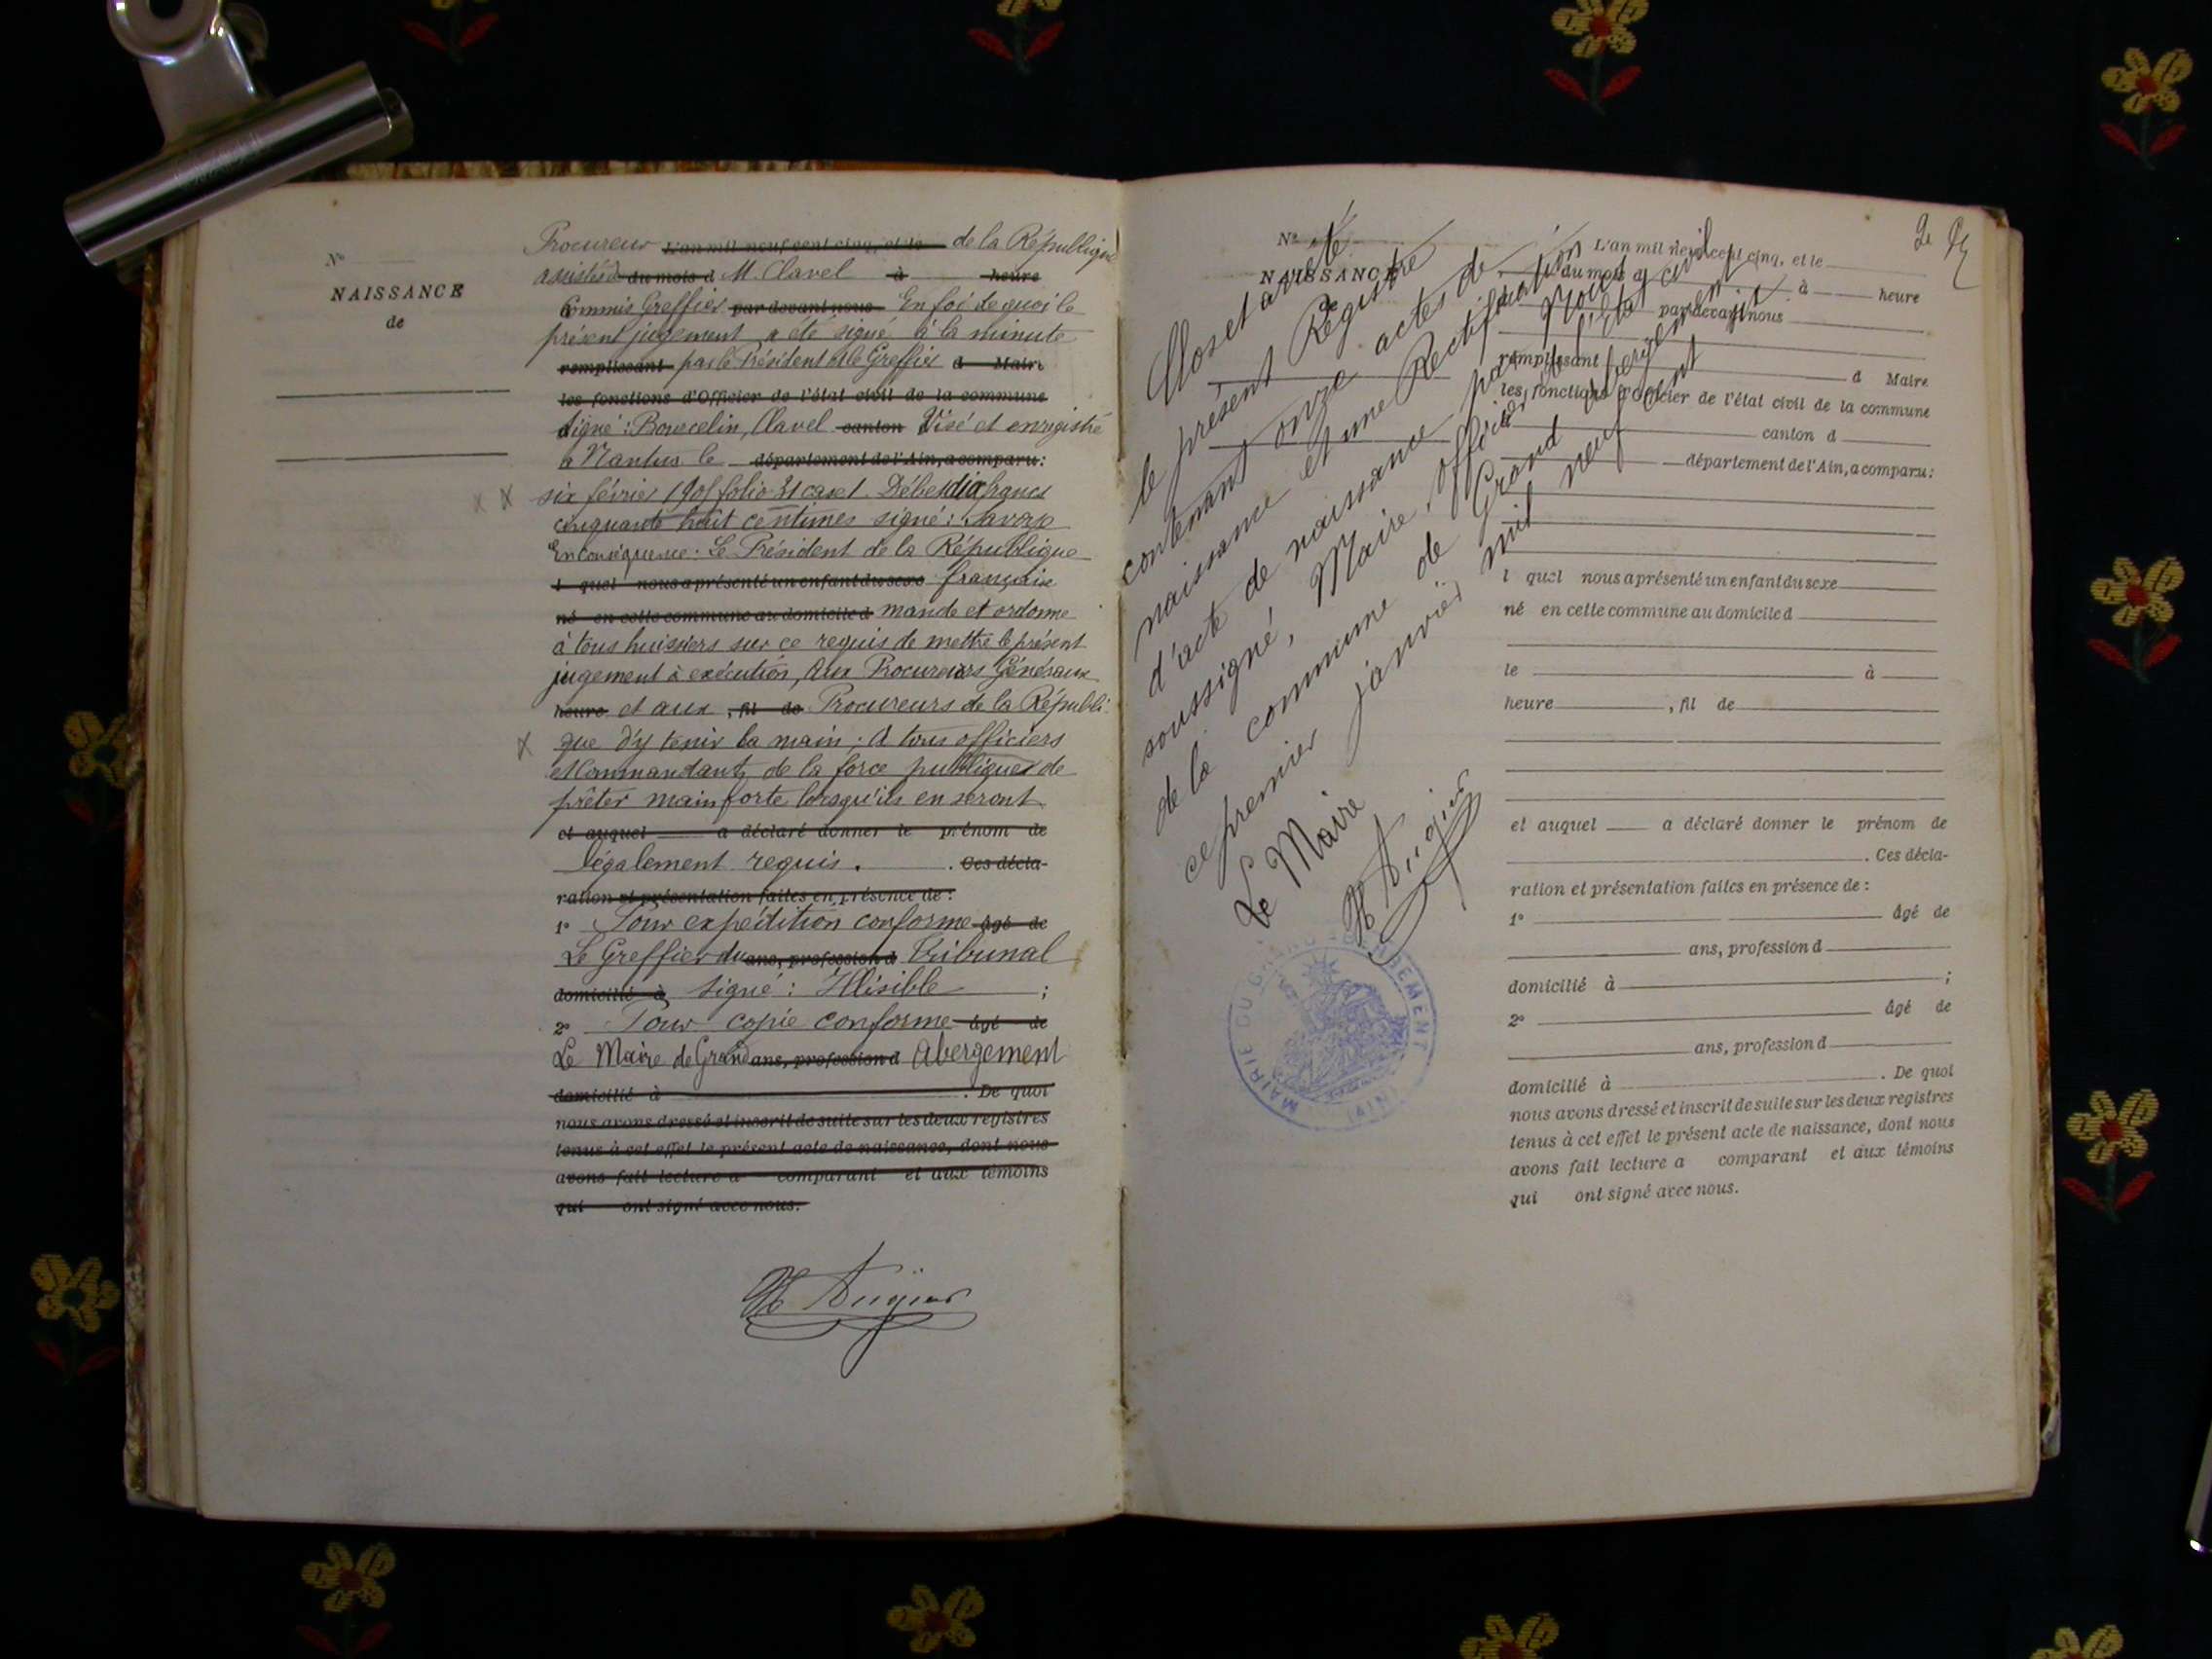 N°
NAISSANCE
de
Procureur L'an mil neuf cent cinq, et le de la République
assisté d du mois d M. Clavel à heure
Commis Greffier par devant nous En foi de quoi le
présent jugement a été signé à la minute
remplissant par le Président et le Greffier d Maire
les fonctions d'Officier de l'état civil de la commune
Signé : Bouvcelin, Clavel canton Visé et enregistré
à Nantua le département de l'Ain, a comparu :
six février 1905 folio 31 case 1. Débet dix francs
cinquante huit centimes signé : Savoye
En Conséquence : Le Président de la République
l quel nous a présenté un enfant du sexe française
né en cette commune au domicile d mande et ordonne
à tous huissiers sur ce requis de mettre le présent
jugement à exécution, Aux Procureurs Généraux
heure et aux , fil de Procureurs de la Républi-
que d'y tenir la main ; A tous officiers
et Commandants de la force publique de
prêter mainforte lorsqu'ils en seront
et auquel a déclaré donner le prénom de
légalement requis. . Ces décla-
ration et présentation faites en présence de :
1° Pour expédition conforme âgé de
Le Greffier du ans, profession d Tribunal
domicilié à Signé : Illisible ;
2° Pour copie conforme âgé de
Le Maire de Grand ans, profession d Abergement
domicilié à . De quoi
nous avons dressé et inscrit de suite sur les deux registres
tenus à cet effet le présent acte de naissance, dont nous
avons fait lecture a comparant et aux témoins
qui ont signé avec nous.
H Augier
Clos et arrêté
le présent Registre
contenant onze actes de
naissance et une Rectification
d'acte de naissance par Nous
soussigné, Maire, Officier de l'état civil
de la commune de Grand Abergement
ce premier janvier mil neuf cent six.
Le Maire
H Augier
MAIRIE DU GRAND ABERGEMENT
(AIN)
N°
NAISSANCE
de
L'an mil neuf cent cinq, et le
du mois d à heure
par devant nous
remplissant d Maire
les fonctions d'Officier de l'état civil de la commune
canton d
département de l'Ain, a comparu :
l quel nous a présenté un enfant du sexe
né en cette commune au domicile d
le à
heure , fil de
et auquel a déclaré donner le prénom de
. Ces décla-
ration et présentation faites en présence de :
1° âgé de
ans, profession d
domicilié à ;
2° âgé de
ans, profession d
domicilié à . De quoi
nous avons dressé et inscrit de suite sur les deux registres
tenus à cet effet le présent acte de naissance, dont nous
avons fait lecture a comparant et aux témoins
qui ont signé avec nous.